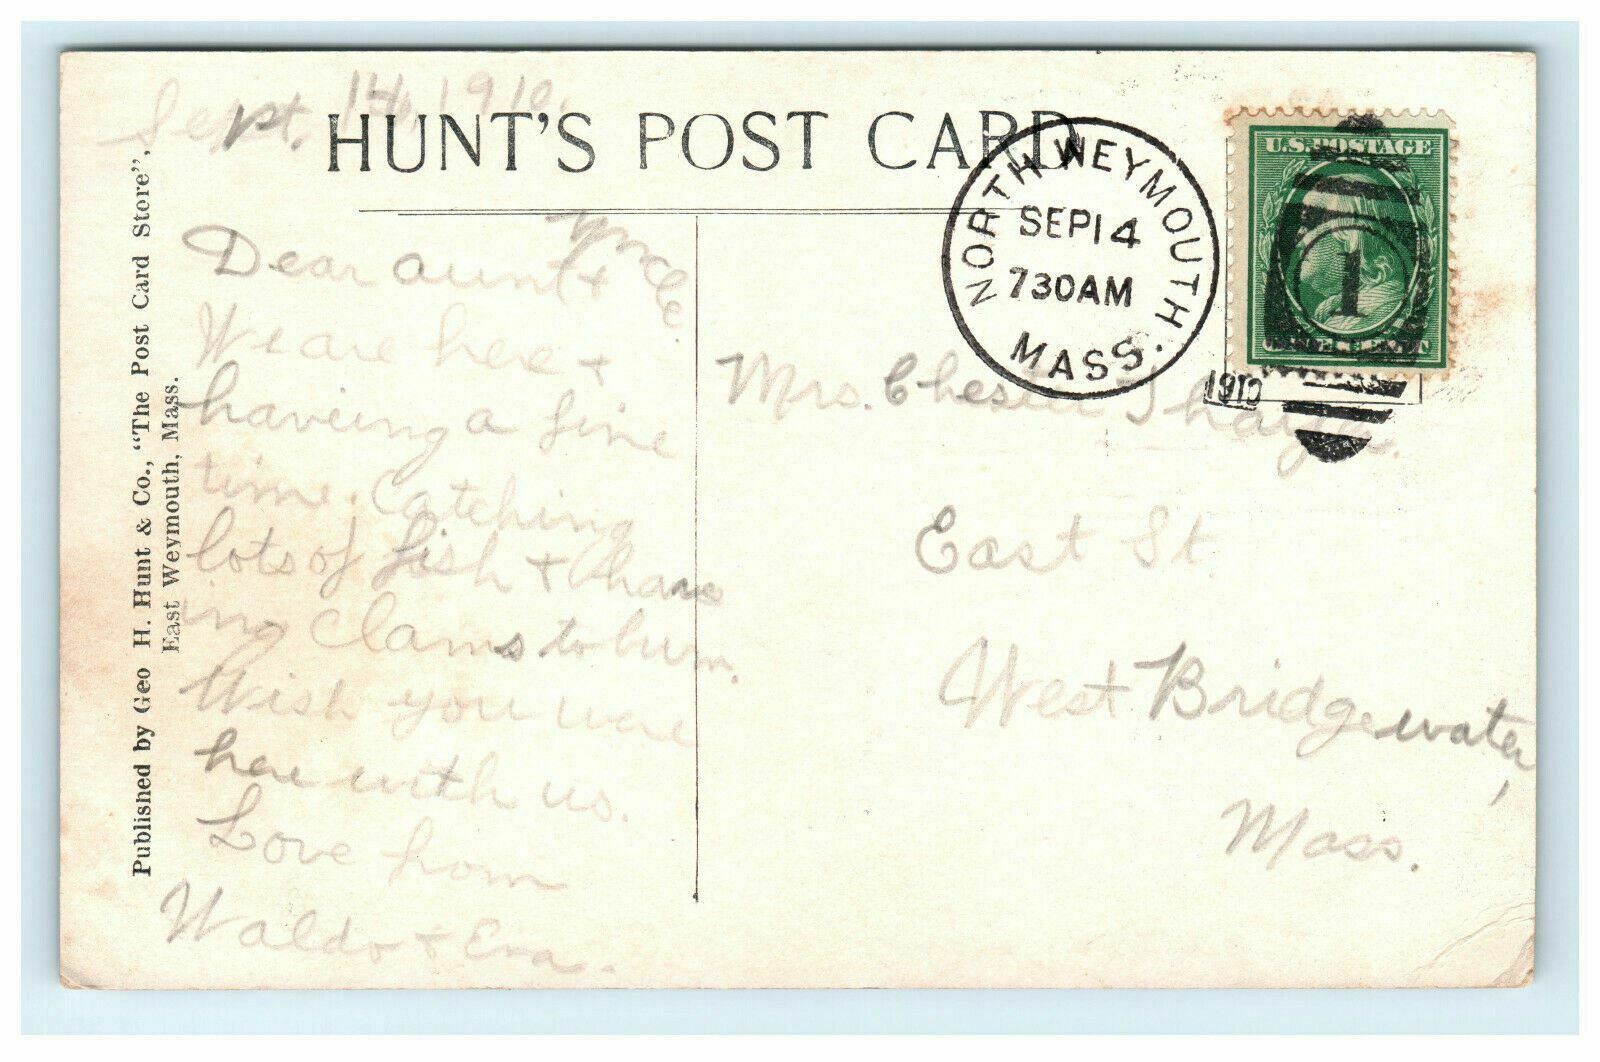 Sept. 14, 1910.
HUNT'S POST CARD
NORTH WEYMOUTH
SEP 14
730AM
MASS.
1910
U.S. POSTAGE
1
Published by Geo H. Hunt & Co., "The Post Card Store",
East Weymouth, Mass.
Dear aunt +
We are here +
having a fine
time. Catching
lots of fish +
ing Clams to burn.
Wish you were
here with us.
Love from
Waldo + Eva.
Mrs. Chester Thayer.
East St.
West Bridgewater,
Mass.